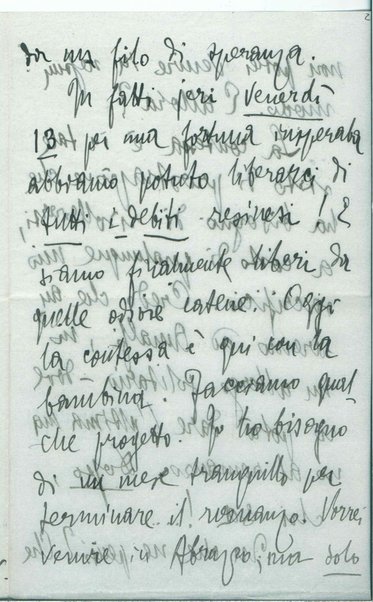 da un filo di speranza.
In fatti jeri Venerdì
13 per una fortuna insperata
abbiamo potuto liberarci di
tutti i debiti resinesi! E
siamo finalmente liberi da
quelle odiose catene. Oggi
la contessa è qui con la
bambina. Facciamo qual
che progetto. Io ho bisogno
di un mese tranquillo per
terminare il romanzo. Vorrei
venire in Abruzzo; ma solo